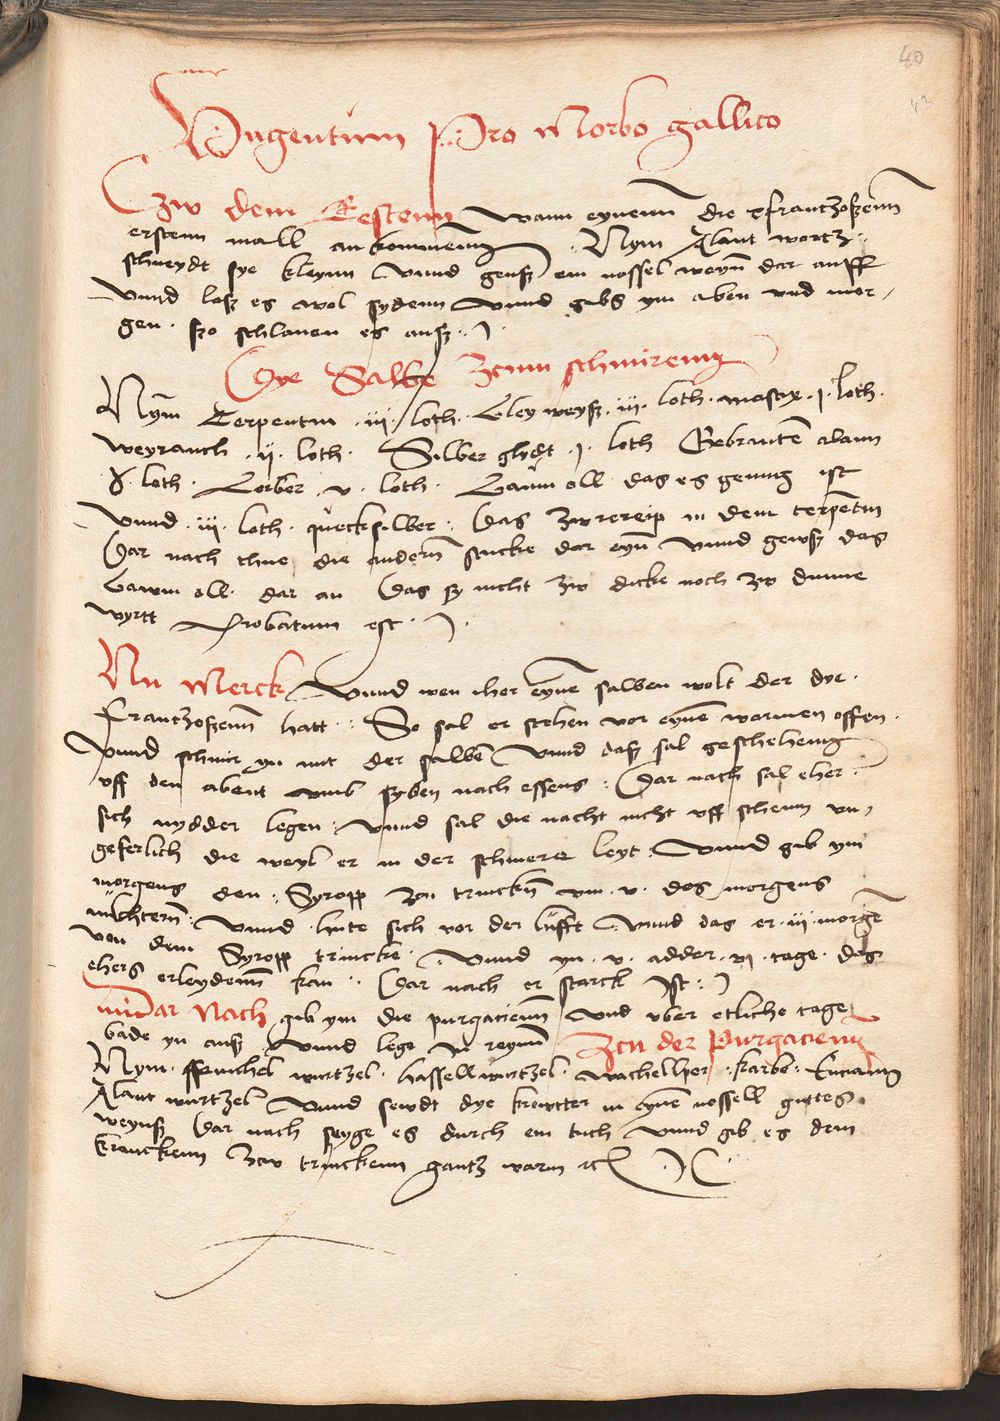 40
43
Vngentum Pro Morbo gallico
Zw dem Erstenn Wann eynenn die Frantzoßenn
erstenn mall an kommenn Nym Alant wortz
schneydt sye kleynn Vnnd geuß ein nossel weyn dar auff
Vnnd loß es wol sydenn Vnnd gibs ym aben vnd mor
gen ßo schlaen es auß
Dye Salbe Zcum schmirenn
Nym Terpentin iii loth Bleyweyß iii loth mastix j loth
weyrauch ij loth Silber glydt j loth Gebranten alaun
loth Lorber v loth Baum oll das es genung ist
Vnnd iii loth quecksilber Das zw in dem terpentin
Dar nach thue die andern stucke dar eyn Vnnd geuß das
Bawm oll dar an Das sy nicht zw dicke noch zw dunne
wyrtt Probatum est
Nu Merck Vnnd wen iher eynen salben wolt der dye
Frantzoßenn hatt So sal er stehen vor eynen warmen offen
Vnnd schmir yn mit der salben Vnnd daß sal geschehenn
vff den abent vmb syben nach essens Dar nach sal eher
sich nydder legen Vnnd sal die nacht nicht vff stehenn vn
geferlich die weyl er in der schmere leyt Vnnd gib ym
morgens den Syropp zcu trincken vm v des morgens
nuchtern Vnnd hute sich vor der lufft Vnnd das er iii morge
von dem Syropp trincke Vnnd yn v adder vj tage des
ehers erleydenn kan Dar nach er starck Ist
Dar Nach gib ym die purgacienn Vnd vber etliche tage
bade yn auß Vnnd lege in reynn Zcu der Purgacienn
Nym ffenichel wurtzel hassellwurtzel wachellper karbe Encian
Alant wurtzel Vnnd sewdt dye krewtter in eynen nossell guttes
weynß Dar nach seyge es durch ein tuch Vnnd gib es dem
kranckenn Zcw trinckenn gantz warm